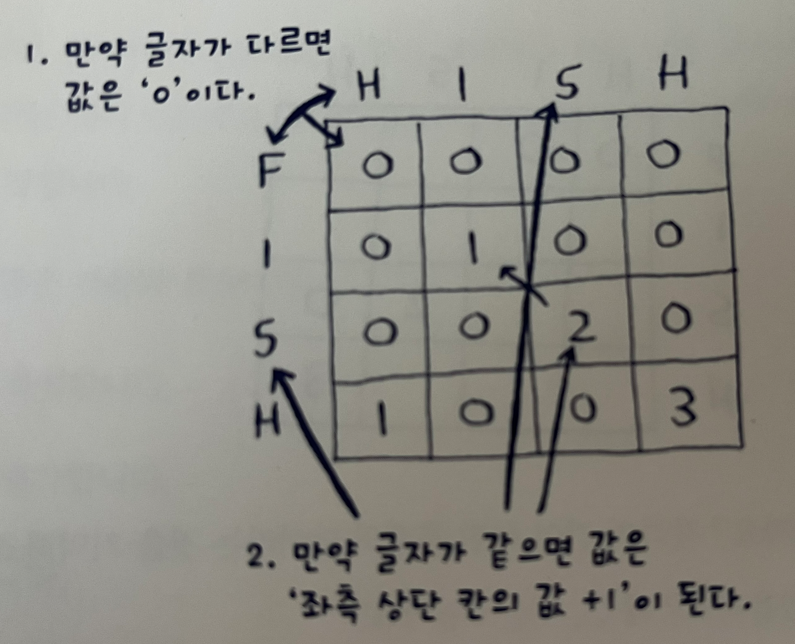 1. 만약 글자가 다르면
값은 '0'이다.
H I S H
F 0 0 0 0
I 0 1 0 0
S 0 0 2 0
H 1 0 0 3
2. 만약 글자가 같으면 값은
'좌측 상단 칸의 값 +1'이 된다.